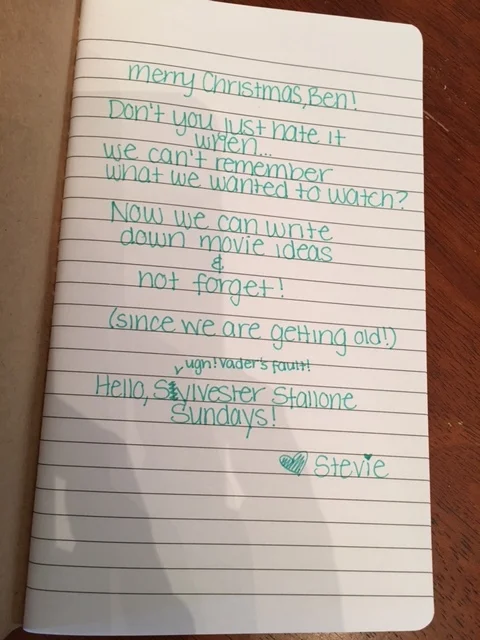 merry Christmas, Ben!
Don't you just hate it
when...
we can't remember
what we wanted to watch?
Now we can write
down movie ideas
&
not forget!
(since we are getting old!)
ugh! Vader's fault!
Hello, Sylvester Stallone
Sundays!
♥ Stevie